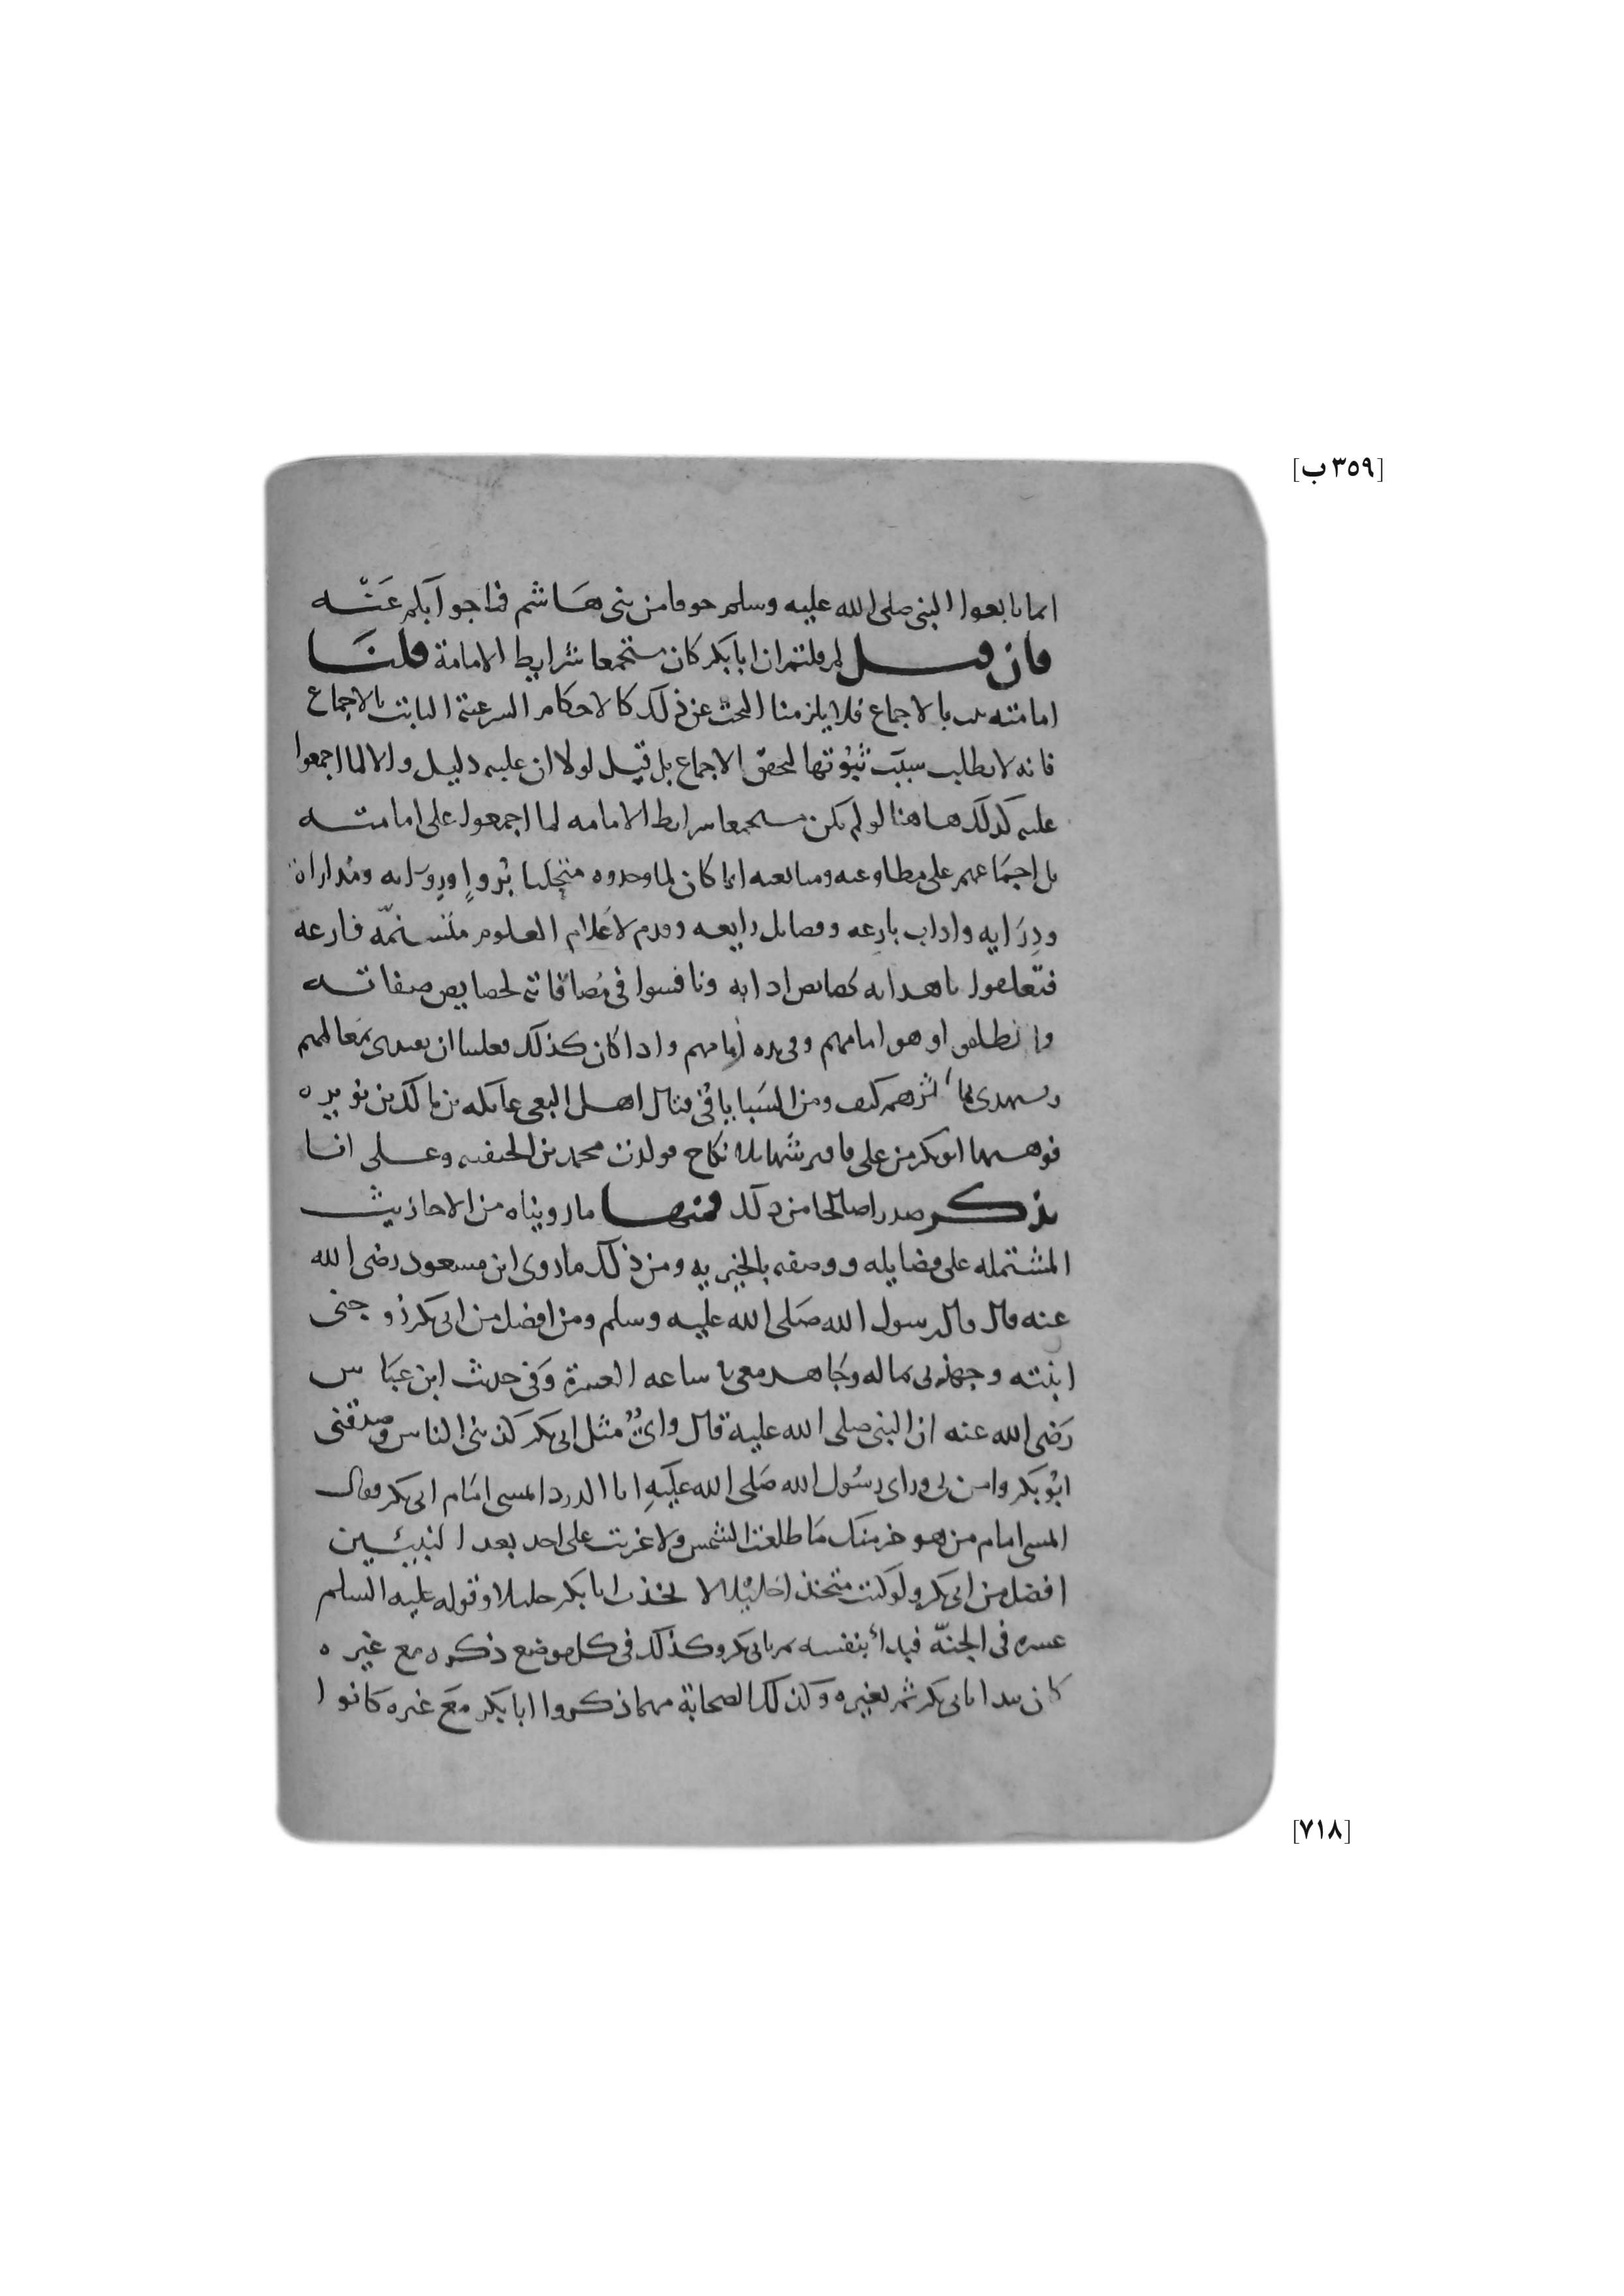 [٣٥٩ ب]
انما بايعوا النبي صلى الله عليه وسلم خوفا من بني هاشم فما جوابكم عنه
فان قيل لم قلتم ان ابا بكر كان مستجمعا شرايط الامامة قلنا
امامته ثبت بالاجماع فلا يلزمنا البحث عن ذلك كالاحكام الشرعية الثابتة بالاجماع
فانه لا يطلب سبب ثبوتها لتحقق الاجماع بل قيل لولا ان عليه دليل والا لما اجمعوا
عليه كذلك هاهنا لو لم يكن مستجمعا شرايط الامامه لما اجمعوا على امامته
بل اجماعهم على مطاوعته ومبايعته انما كان لما وجدوه
ودرايه واداب بارعه وفضائل رايعه وقدم لاعلام العلوم متسنمة فارعه
ونافسوا في لخصايص صفاته
هو امامهم وفي يده زمامهم واذا كان كذلك فعلينا ان نقتدي بمعالمهم
ومن السبايا في قتال اهل البغي مالك بن نويره
ابو بكر من علي بلا نكاح فولدت محمد بن الحنفيه وعلى انا
نذكر صدرا صالحا من ذلك فمنها ما رويناه من الاحاديث
المشتمله على فضايله ووصفه بالخيريه ومن ذلك ما روى ابن مسعود رضي الله
عنه قال قال رسول الله صلى الله عليه وسلم ومن افضل من ابي بكر زوجني
ابنته وجهزني بماله وجاهد معي ساعه العسرة وفي حديث ابن عباس
رضي الله عنه ان النبي صلى الله عليه قال واين مثل ابي بكر كذبني الناس وصدقني
ابو بكر وامن بي وراى رسول الله صلى الله عليه ابا الدرداء يمشي امام ابي بكر فقال
اتمشي امام من هو خير منك ما طلعت الشمس ولا غربت على احد بعد النبيئين
افضل من ابي بكر ولو كنت متخذا خليلا لا تخذت ابا بكر خليلا وقوله عليه السلم
عشره في الجنة فبدأ بنفسه ثم بابي بكر وكذلك في كل موضع ذكره مع غيره
كان يبدا بابي بكر ثم بغيره وكذلك الصحابة مهما ذكروا ابا بكر مع غيره كانوا
[٧١٨]